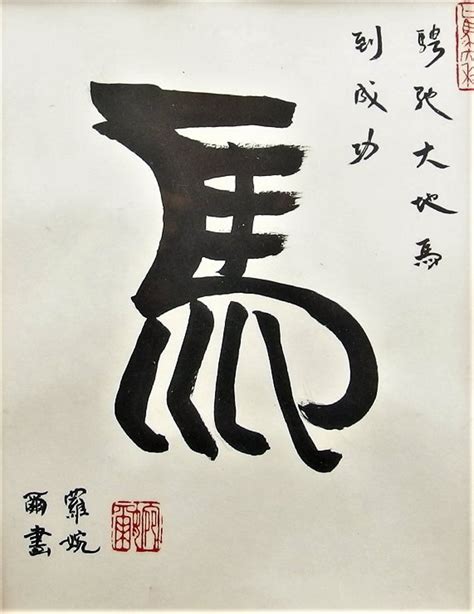 騁馳大地馬
到成功
馬
羅婉
爾書